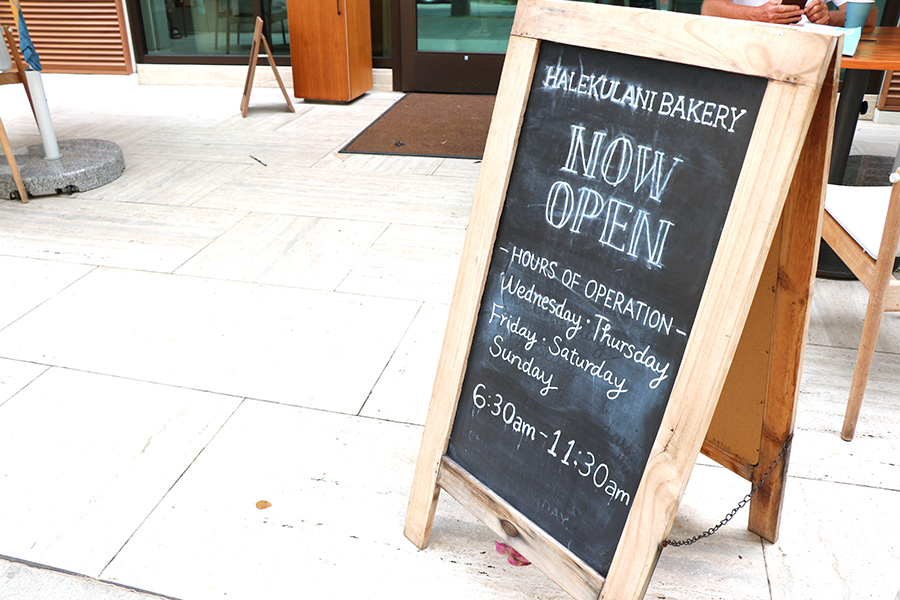 HALEKULANI BAKERY
NOW
OPEN
-HOURS OF OPERATION-
Wednesday · Thursday
Friday · Saturday
Sunday
6:30am-11:30am
DAY